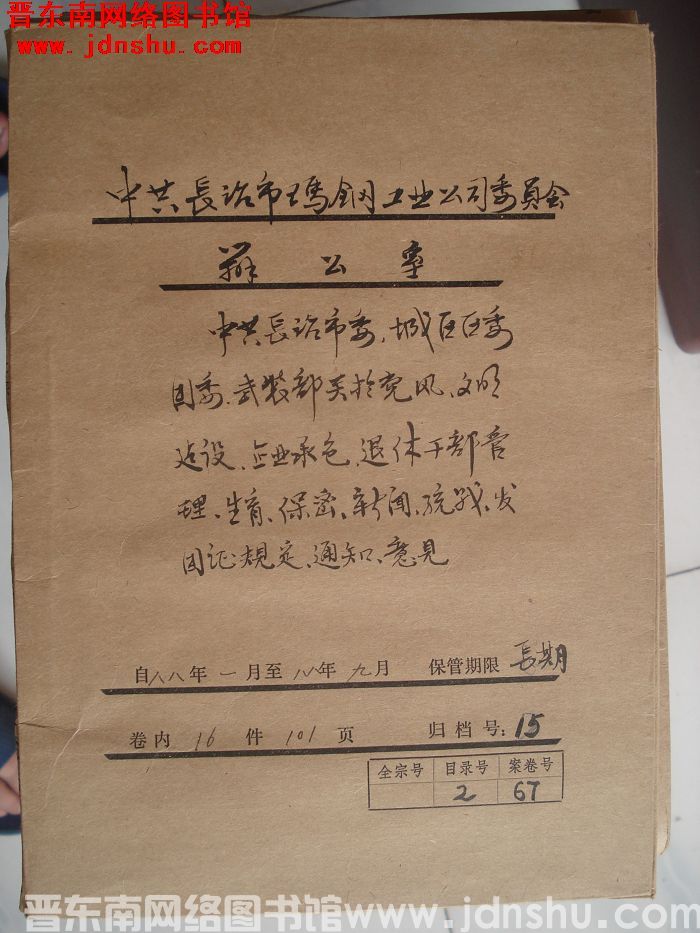 晋东南网络图书馆
www.jdnshu.com
中共長治市玛鋼工业公司委員会
辦公室
中共長治市委、城区区委
团委、武装部关於党风、文明
建设、企业承包、退休干部管
理、生育、保密、新闻、统战、发
团证規定、通知、意見
自八八年一月至八八年九月 保管期限 長期
卷内 16 件 101 页 归档号: 15
全宗号 目录号 案卷号
2 67
晋东南网络图书馆 www.jdnshu.com